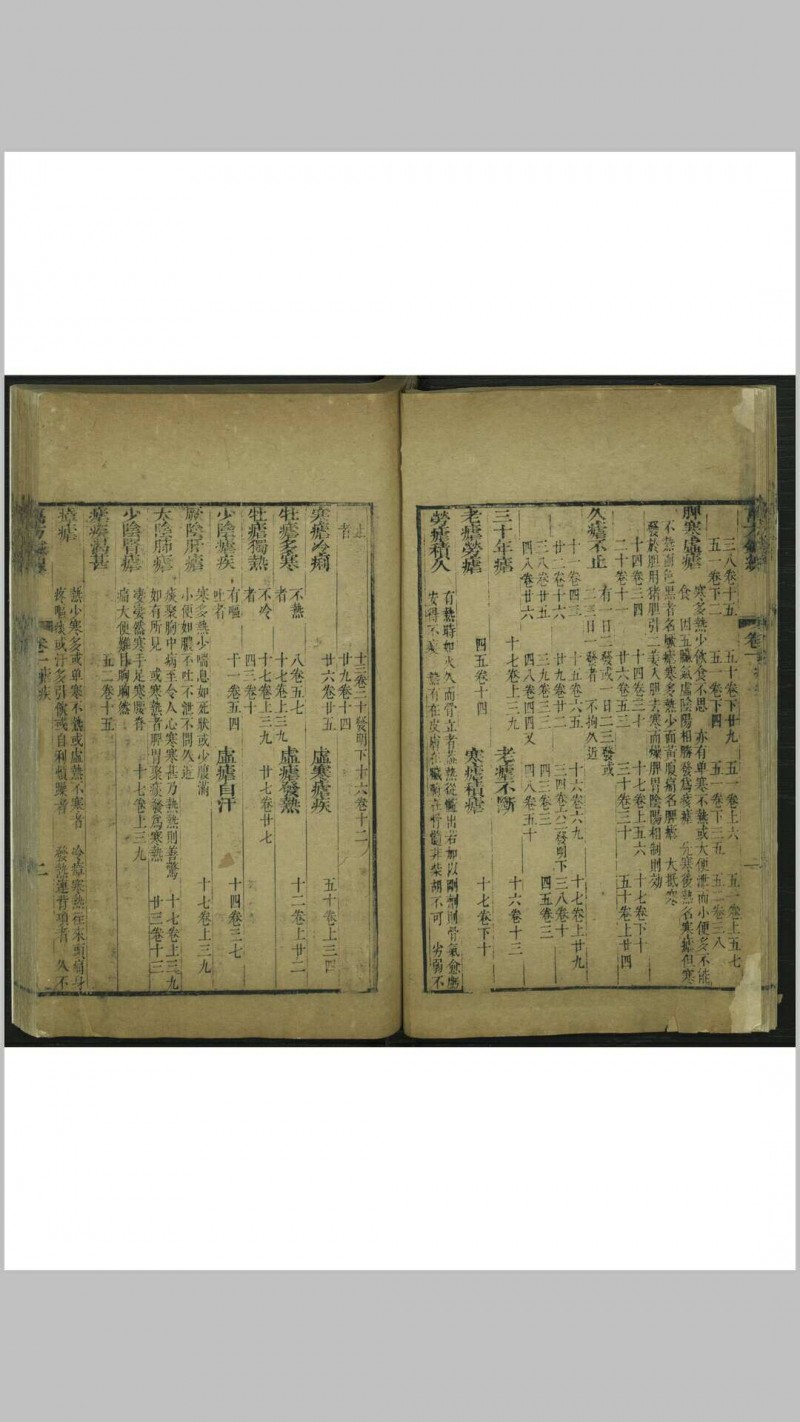 三八卷十五 五十卷下廿九 五一卷上六 五一卷上五七
五一卷下二 五一卷下四 五一卷下三五 五二卷三八
脾寒虛瘧
寒多熱少飲食不思 亦有單寒不熱或大便泄而小便多不能
食 因五臟氣虛陰陽相勝發爲痎瘧 先寒後熱名寒瘧但寒
不熱面色黑者名 瘧寒多熱少面黃腹痛名脾瘧 大抵寒
發於膽用猪膽引二姜入膽去寒而燥脾胃陰陽相制則効
十四卷三四 十四卷三十 十七卷上五六 十七卷下十
二十卷十一 廿六卷五三 三十卷三十 五十卷上廿四
久瘧不止
有一日二發或一日二三發或
二三日一發者 不拘久近
十一卷四三 十五卷六五 十六卷六九 十七卷上廿九
廿二卷十六 廿九卷廿二 三四卷六二發明下三八卷十
三八卷廿五 三九卷三三 四三卷三 四五卷三
四八卷廿六 四八卷四四又 四八卷五十
三十年瘧 十七卷上三九 老瘧不斷 十六卷十三
老瘧勞瘧 四五卷十四 寒瘧積瘧 十七卷下十
勞瘧積久
有熱時如火久而骨立者 熱從髓出若加以剛劑則骨氣愈
安得不 熱有在皮膚在臟腑在骨髓非柴胡不可 劣弱不
止
者
十三卷三十發明下十六卷十二
廿九卷十四
寒瘧冷痢 廿六卷廿五 虛寒瘧疾 五十卷上三四
牡瘧多寒 不熱者 八卷五七 十七卷上三九 虛瘧發熱 十二卷上廿二
牡瘧獨熱 不冷者 十七卷上三九 廿七卷廿七
四三卷十
少陰瘧疾 有嘔吐者 十一卷五四 虛瘧自汗 十四卷三七
厥陰肝瘧
寒多熱少喘息如死狀或少腹滿
小便如膿不吐不泄不問久近 十七卷上三九
太陰肺瘧
痰聚胸中病至令人心寒寒甚乃熱熱則善驚 十七卷上三九
如有所見 或寒熱者脾胃聚痰發爲寒熱 廿三卷十三
少陰腎瘧
悽悽然寒手足寒腰脊
痛大便難目眴眴然 十七卷上三九
瘧疾渴甚 五二卷十五
瘴瘧
熱少寒多或單寒不熱或虛熱不寒者 冷瘴寒熱往來頭痛身
疼嘔痰或汗多引飲或自利煩躁者 發熱連背項者 久不
卷一
二